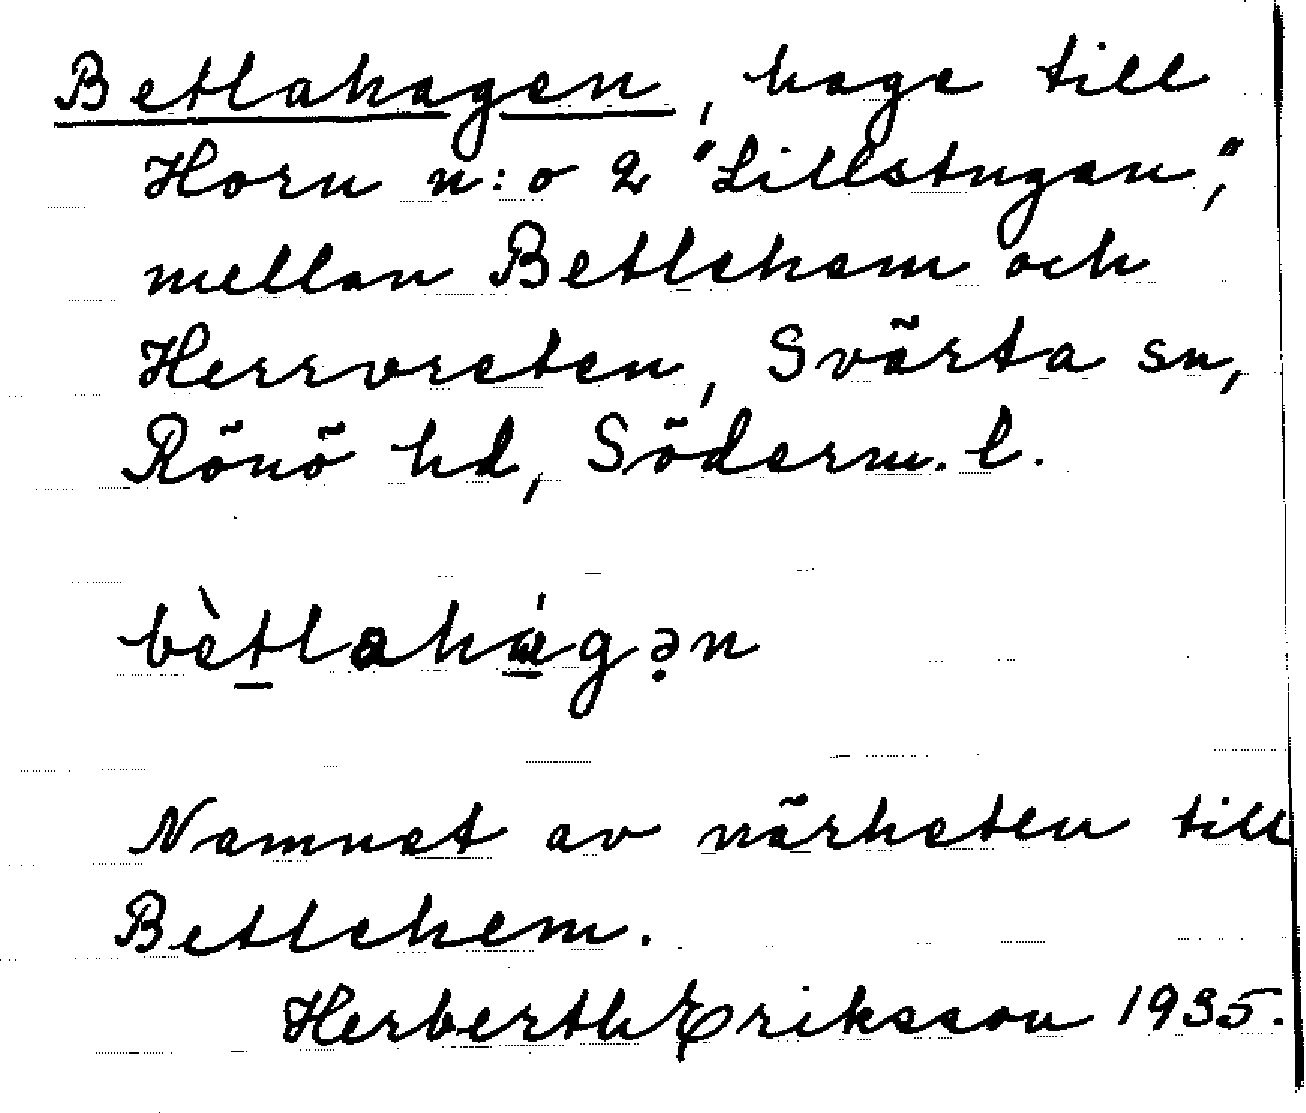 Betlahagen, hage till
Horn n:o 2 "Lillstugan",
mellan Betlehem och
Herrvreten, Svärta sn,
Rönö hd, Söderm. l.
bètlahág̣ən
Namnet av närheten till
Betlehem.
Herberth Eriksson 1935.